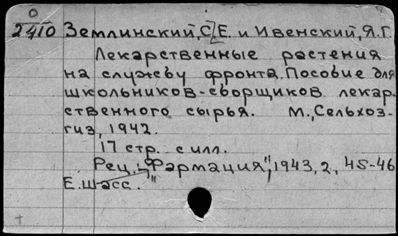 0
2410 Землинский, С.Е. и Ивенский, Я.Г.
Лекарственные растения
на службу фронта. Пособие для
школьников-сборщиков лекар-
ственного сырья. М., Сельхоз-
гиз, 1942.
17 стр. с илл.
Рец. „Фармация", 1943, 2, 45-46
Е. Шасс. "